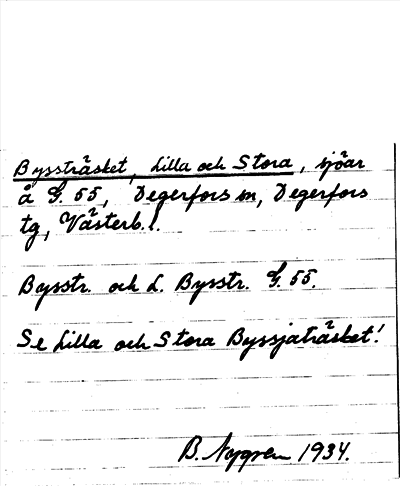 Bysträsket, Lilla och Stora, sjöar
å G. 55, Degerfors sn, Degerfors
tg, Västerb. l.
Bysstr. och L. Bysstr. G. 55.
Se Lilla och Stora Byssjaträsket!
B. Nygren 1934.